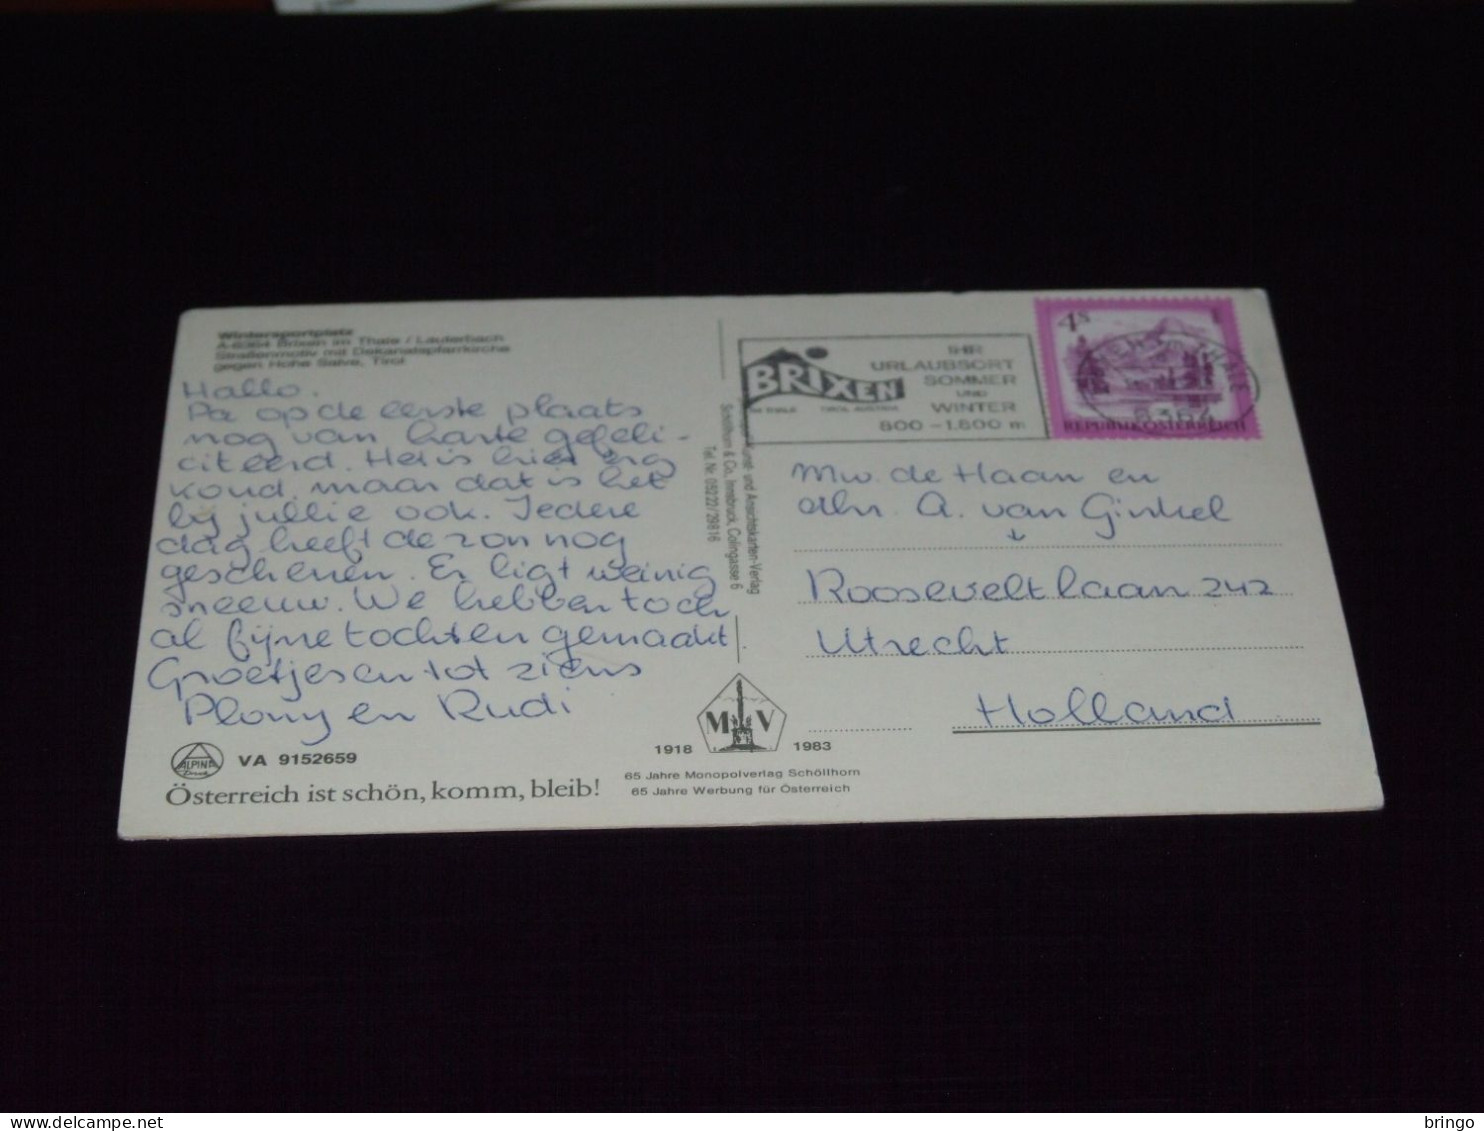 Wintersportplatz
A-6364 Brixen im Thale / Lauterbach
Straßenmotiv mit Dekanatspfarrkirche
gegen Hohe Salve, Tirol
Hallo.
Pa op de eerste plaats
nog van harte gefeli-
citeerd. Het is hier erg
koud, maar dat is het
bij jullie ook. Iedere
dag heeft de zon nog
geschenen. Er ligt weinig
sneeuw. We hebben toch
al fijne tochten gemaakt.
Groetjes en tot ziens
Plony en Rudi
ALPINA
Druck
VA 9152659
Österreich ist schön, komm, bleib!
Kunst- und Ansichtskarten-Verlag
Schöllhorn & Co., Innsbruck, Colingasse 6
Tel. Nr. 05222/29816
M V
1918 1983
65 Jahre Monopolverlag Schöllhorn
65 Jahre Werbung für Österreich
BRIXEN
IM THALE TIROL AUSTRIA
IHR
URLAUBSORT
SOMMER
UND
WINTER
800 - 1.800 m
4 S
REPUBLIK ÖSTERREICH
6364
Mw. de Haan en
dhr. A. van Ginkel
Rooseveltlaan 242
Utrecht
Holland
bringo